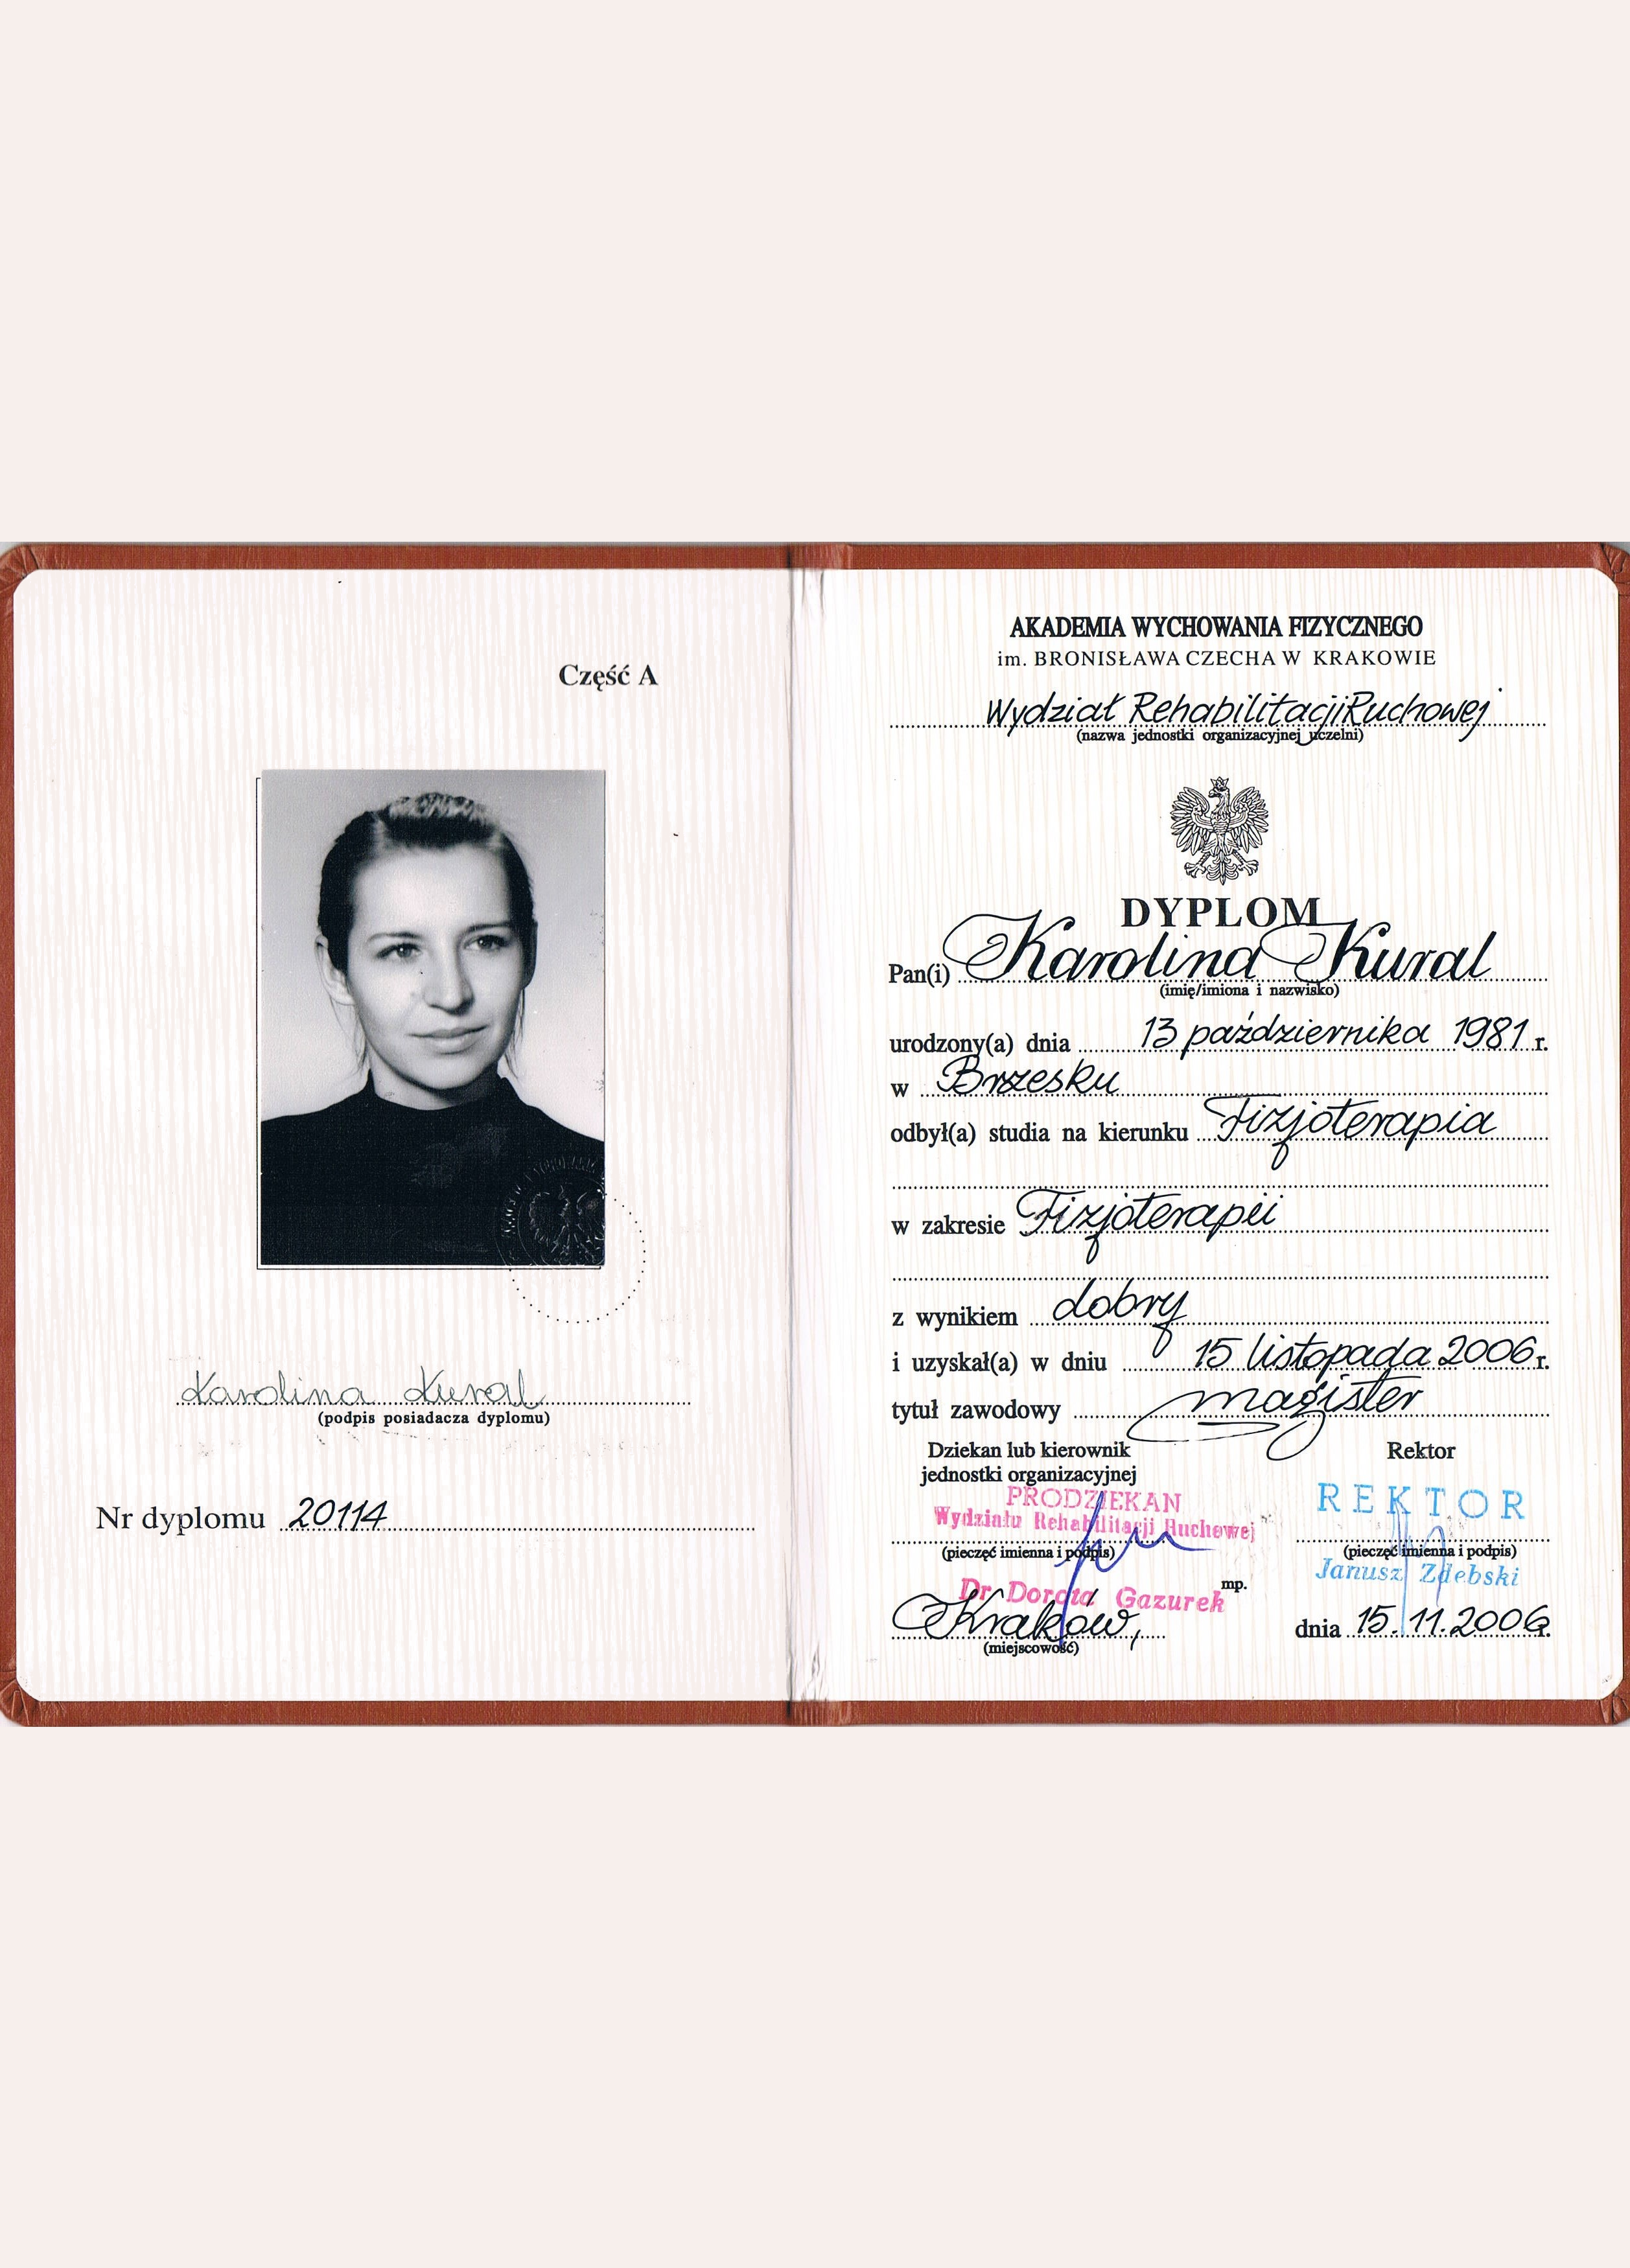 Część A
Karolina Kural
(podpis posiadacza dyplomu)
Nr dyplomu 20114
AKADEMIA WYCHOWANIA FIZYCZNEGO
im. BRONISŁAWA CZECHA W KRAKOWIE
Wydział Rehabilitacji Ruchowej
(nazwa jednostki organizacyjnej uczelni)
DYPLOM
Pan(i) Karolina Kural
(imię/imiona i nazwisko)
urodzony(a) dnia 13 października 1981 r.
w Brzesku
odbył(a) studia na kierunku Fizjoterapia
w zakresie Fizjoterapii
z wynikiem dobry
i uzyskał(a) w dniu 15 listopada 2006 r.
tytuł zawodowy magister
Dziekan lub kierownik
jednostki organizacyjnej
PRODZIEKAN
Wydziału Rehabilitacji Ruchowej
(pieczęć imienna i podpis)
Dr Dorota Gazurek
Kraków,
(miejscowość)
mp.
Rektor
REKTOR
(pieczęć imienna i podpis)
Janusz Zdebski
dnia 15.11.2006 r.